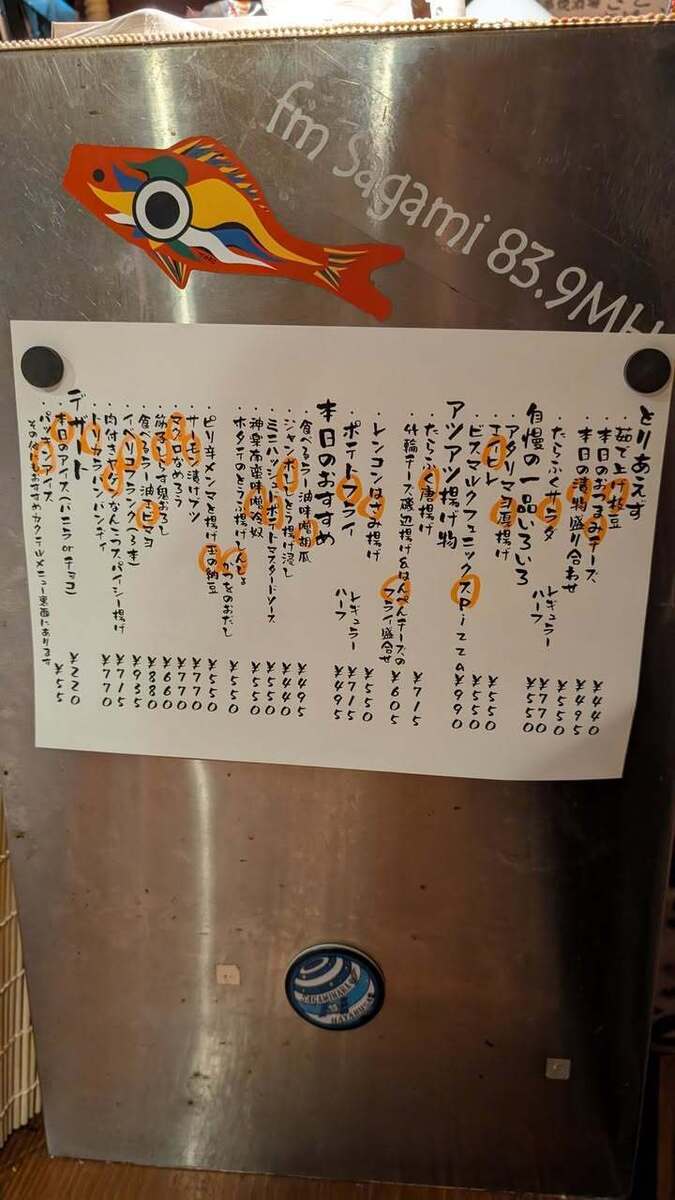 fm Sagami 83.9MHz
とりあえず
・茹で上げ枝豆 ¥440
・本日のおつまみチーズ ¥495
・本日の漬物盛り合わせ
・たらふくサラダ レギュラー ¥770
ハーフ ¥550
自慢の一品いろいろ
・アタリマヨ唐揚げ ¥550
・エイヒレ ¥550
・ビスマルクフェニックスPizza ¥990
アツアツ揚げ物
・たらふく唐揚げ ¥715
・竹輪チーズ磯辺揚げ&はんぺんチーズの
フライ盛合せ ¥605
・レンコンはさみ揚げ ¥550
・ポテトフライ レギュラー ¥715
ハーフ ¥495
本日のおすすめ
・食べるラー油味噌胡瓜 ¥495
・ジャンボししとう揚げ浸し ¥440
・ミニハッシュドポテトマスタードソース ¥550
・神楽南蛮味噌冷奴 ¥550
・ホタテのとうふ揚げしんじょ
かつをのおだし ¥550
・ピリ辛メンマと揚げ玉の納豆 ¥550
・サーモン漬けブツ ¥770
・マグロなめろう ¥770
・筋子しらす鬼おろし ¥660
・食べるラー油キムピマヨ ¥880
・イベリコフランク(3本) ¥935
・肉付きヤゲンなんこつスパイシー揚げ ¥715
・トリカラバンバンティ ¥770
デザート
・本日のアイス(バニラorチョコ) ¥220
・パッチンアイス ¥55
その他にもおすすめカクテルメニュー裏面にあります
SAGAMIHARA
HAYABUSA